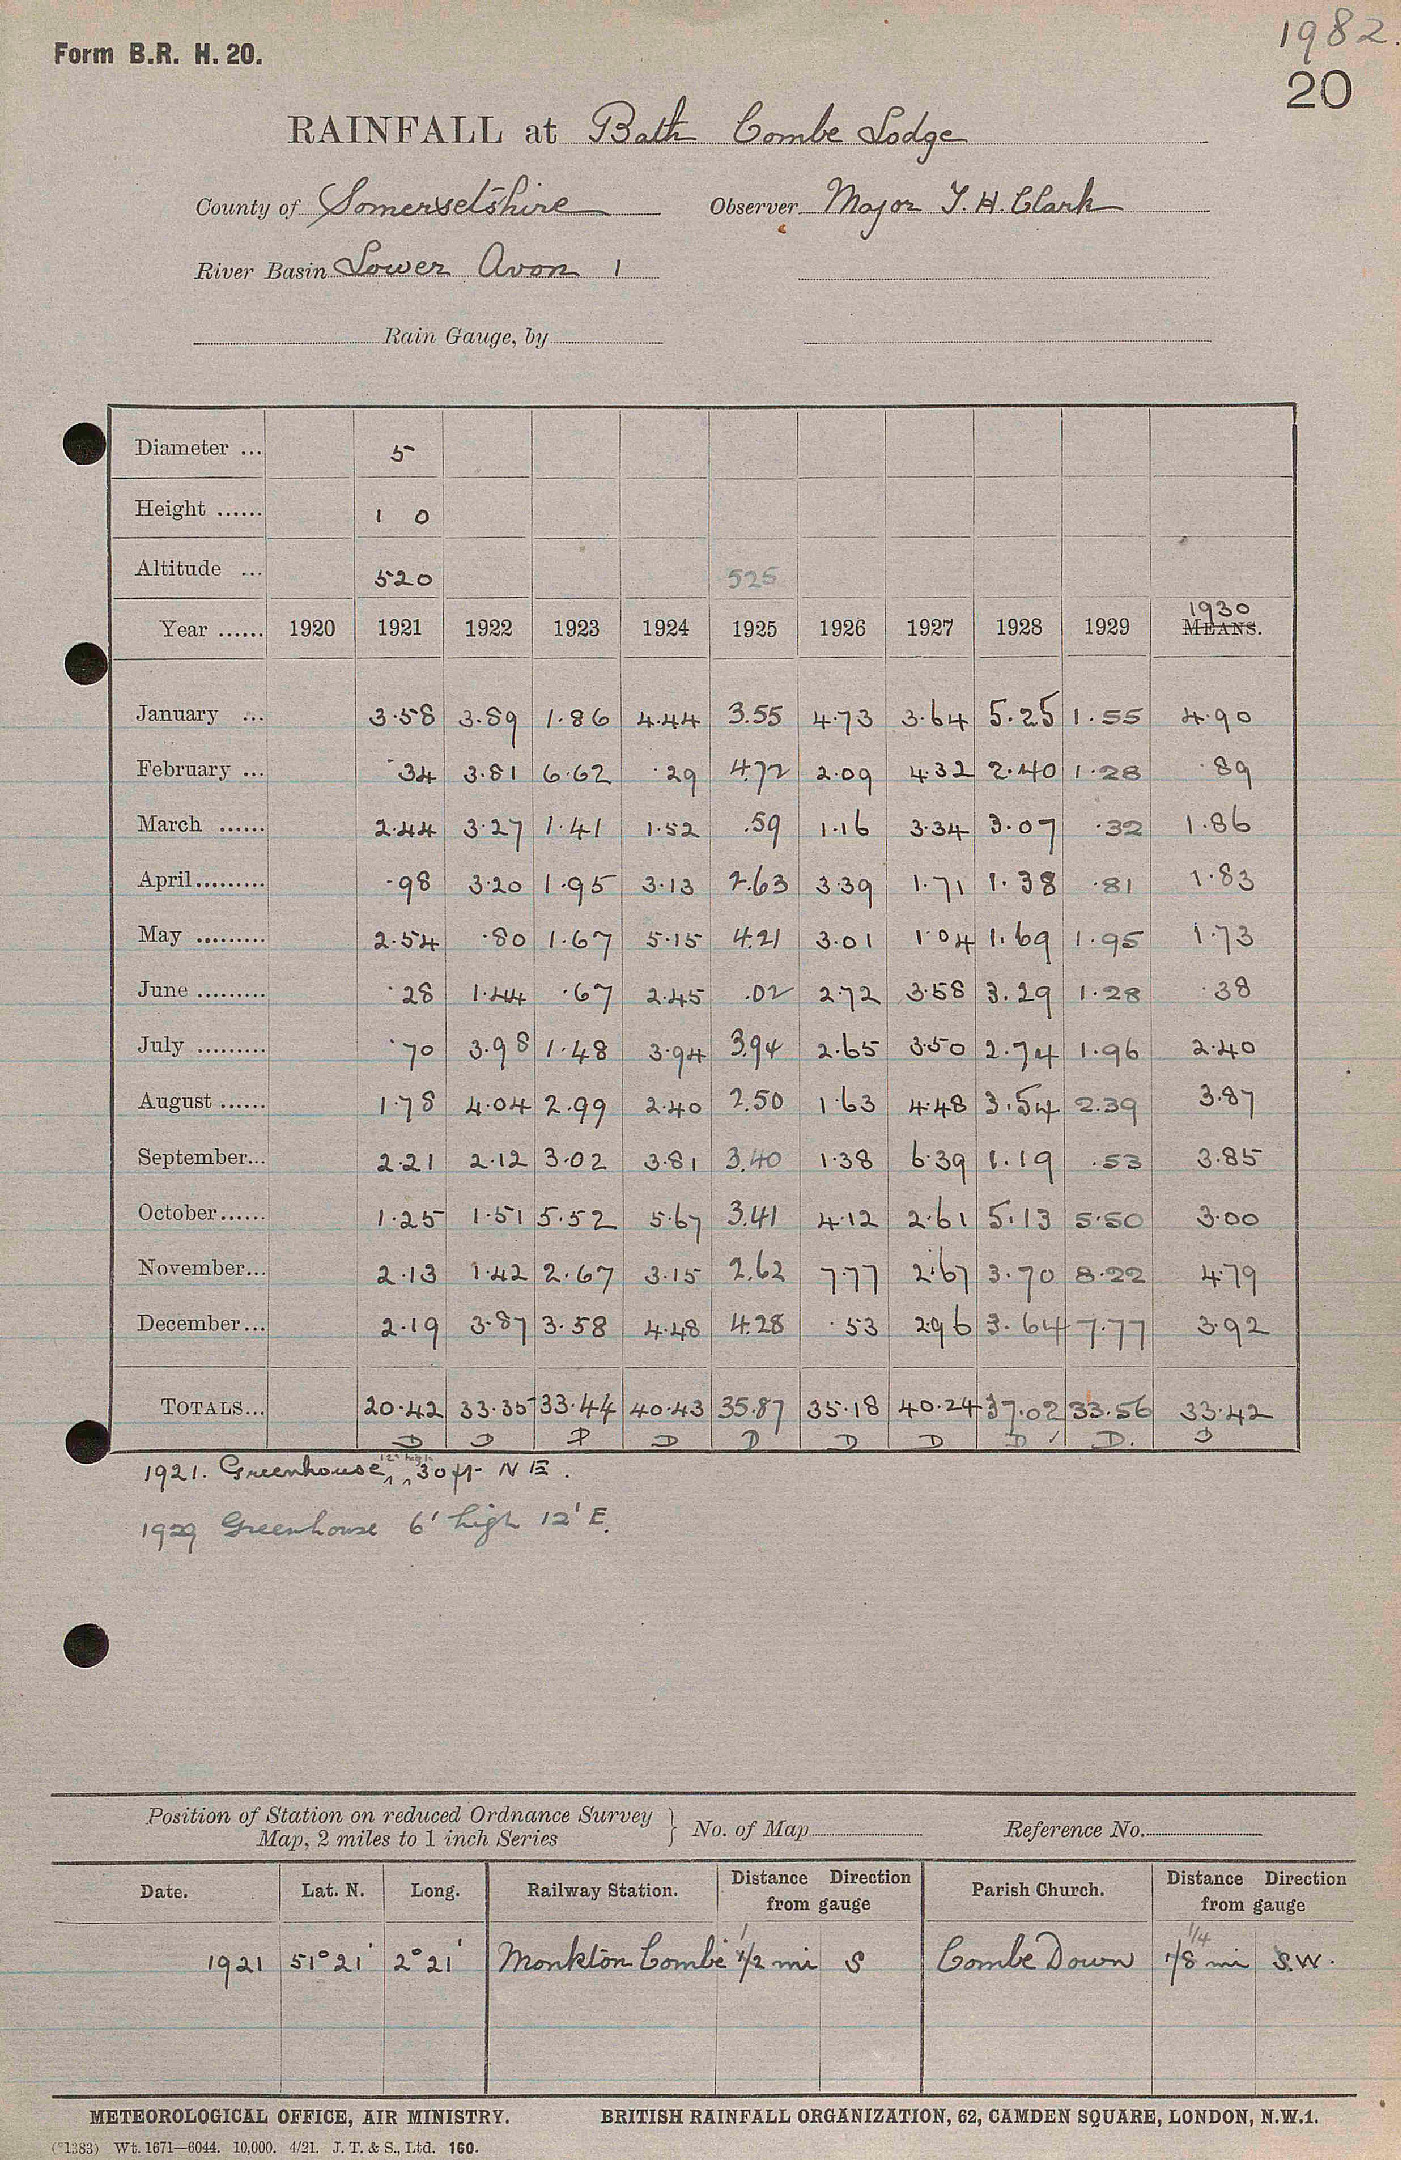 1982.
Form B.R. H. 20.
20
RAINFALL at Bath Combe Lodge
County of Somersetshire Observer Major T. H. Clark
River Basin Lower Avon 1
Rain Gauge, by
Diameter ... 5
Height ...... 1 0
Altitude ... 520 525
Year ...... 1920 1921 1922 1923 1924 1925 1926 1927 1928 1929 1930 MEANS.
January ... 3.58 3.89 1.86 4.44 3.55 4.73 3.64 5.25 1.55 4.90
February ... .34 3.81 6.62 .29 4.72 2.09 4.32 2.40 1.28 .89
March ...... 2.44 3.27 1.41 1.52 .59 1.16 3.34 3.07 .32 1.86
April ......... .98 3.20 1.95 3.13 2.63 3.39 1.71 1.38 .81 1.83
May ......... 2.54 .80 1.67 5.15 4.21 3.01 1.04 1.69 1.95 1.73
June ......... .28 1.44 .67 2.45 .02 2.72 3.58 3.29 1.28 .38
July ......... .70 3.98 1.48 3.94 3.94 2.65 3.50 2.74 1.96 2.40
August ...... 1.78 4.04 2.99 2.40 2.50 1.63 4.48 3.54 2.39 3.87
September... 2.21 2.12 3.02 3.81 3.40 1.38 6.39 1.19 .53 3.85
October...... 1.25 1.51 5.52 5.67 3.41 4.12 2.61 5.13 5.50 3.00
November... 2.13 1.42 2.67 3.15 2.62 7.77 2.67 3.70 8.22 4.79
December... 2.19 3.87 3.58 4.48 4.28 .53 2.96 3.64 7.77 3.92
TOTALS... 20.42 33.35 33.44 40.43 35.87 35.18 40.24 37.02 33.56 33.42
D D D D D D D D ✓ D. D
1921. Greenhouse 12' high 30 ft NE.
1929 Greenhouse 6' high 12' E.
Position of Station on reduced Ordnance Survey Map, 2 miles to 1 inch Series } No. of Map Reference No.
Date. Lat. N. Long. Railway Station. Distance Direction from gauge Parish Church. Distance Direction from gauge
1921 51° 21' 2° 21' Monkton Combe 1/2 mi S Combe Down 1/4 1/8 mi S.W.
METEOROLOGICAL OFFICE, AIR MINISTRY. BRITISH RAINFALL ORGANIZATION, 62, CAMDEN SQUARE, LONDON, N.W.1.
(*1383) Wt. 1671—6044. 10,000. 4/21. J. T. & S., Ltd. 160.